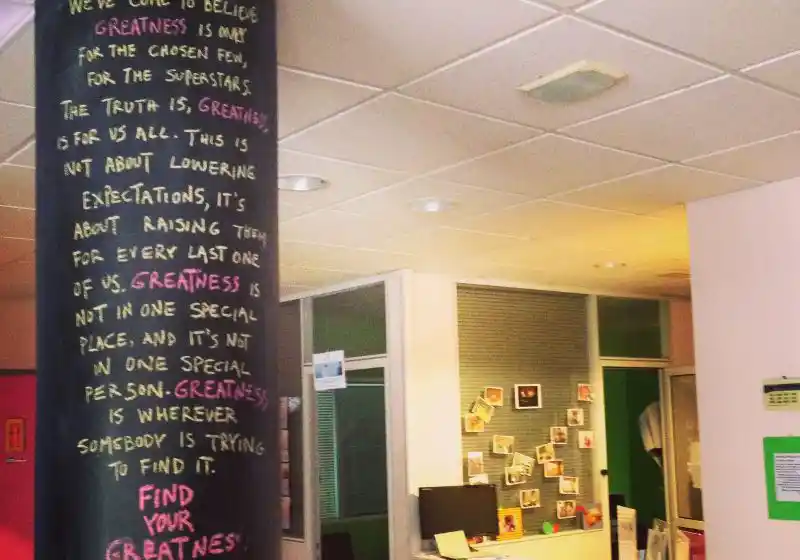 WE'VE COME TO BELIEVE
GREATNESS IS ONLY
FOR THE CHOSEN FEW,
FOR THE SUPERSTARS.
THE TRUTH IS, GREATNESS,
IS FOR US ALL. THIS IS
NOT ABOUT LOWERING
EXPECTATIONS, IT'S
ABOUT RAISING THEM
FOR EVERY LAST ONE
OF US. GREATNESS IS
NOT IN ONE SPECIAL
PLACE, AND IT'S NOT
IN ONE SPECIAL
PERSON. GREATNESS
IS WHEREVER
SOMEBODY IS TRYING
TO FIND IT.
FIND
YOUR
GREATNESS.